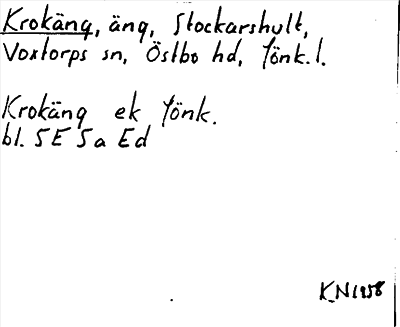 Krokäng, äng, Stockarshult,
Voxtorps sn, Östbo hd, Jönk. l.
Krokäng ek Jönk.
bl. 5E 5a Ed
KN 1958